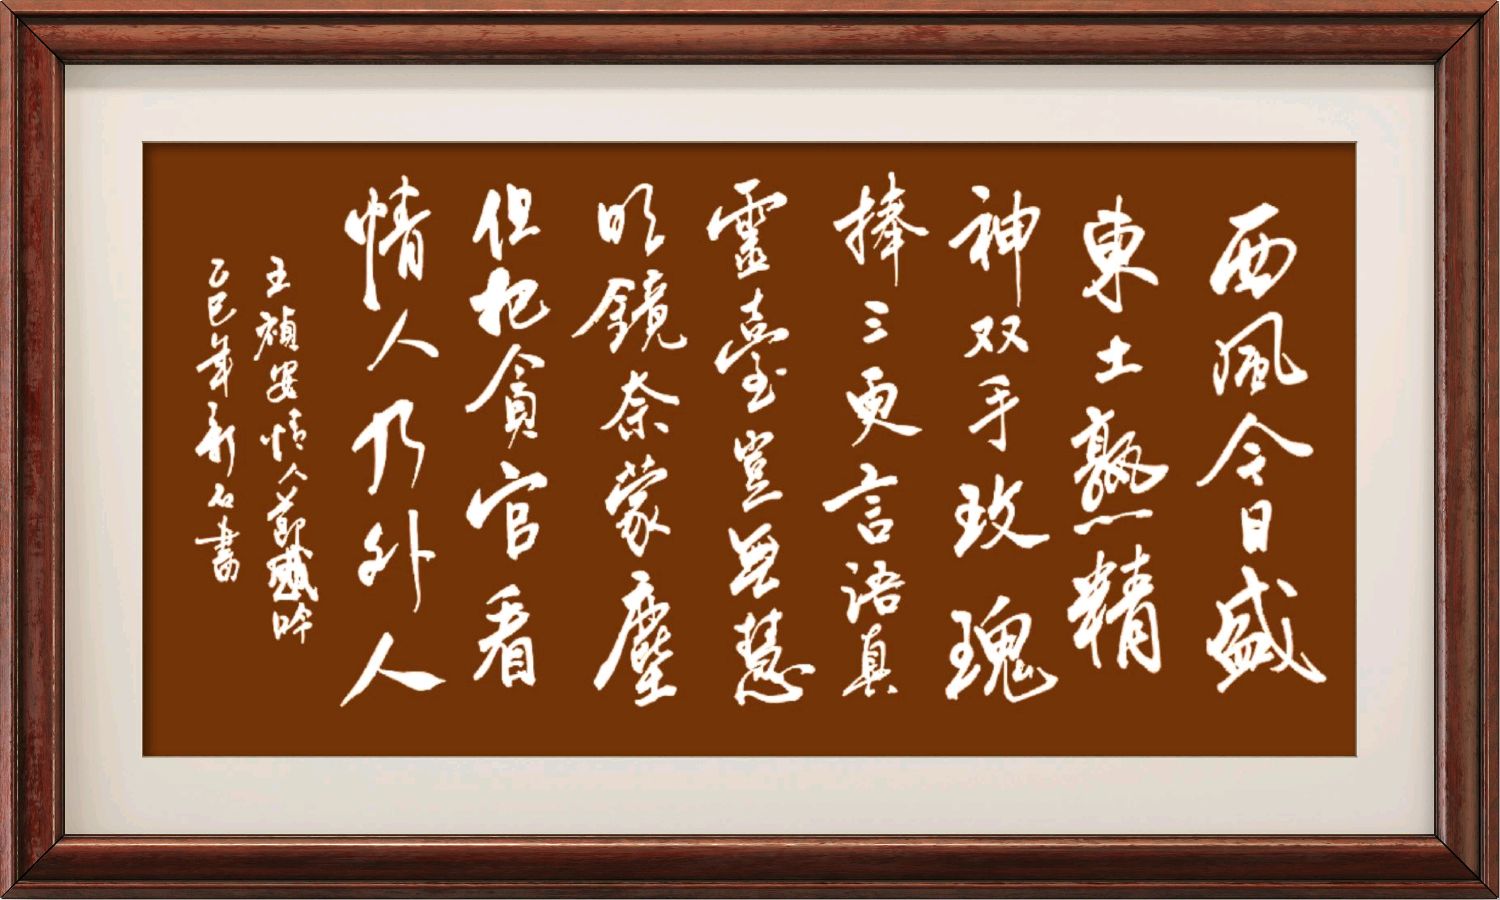 西風今日盛
東土孰精
神双手玫瑰
捧三更言語真
靈臺豈無慧
明鏡奈蒙塵
但把貪官看
情人乃外人
王禎安情人節感吟
乙巳年新石書